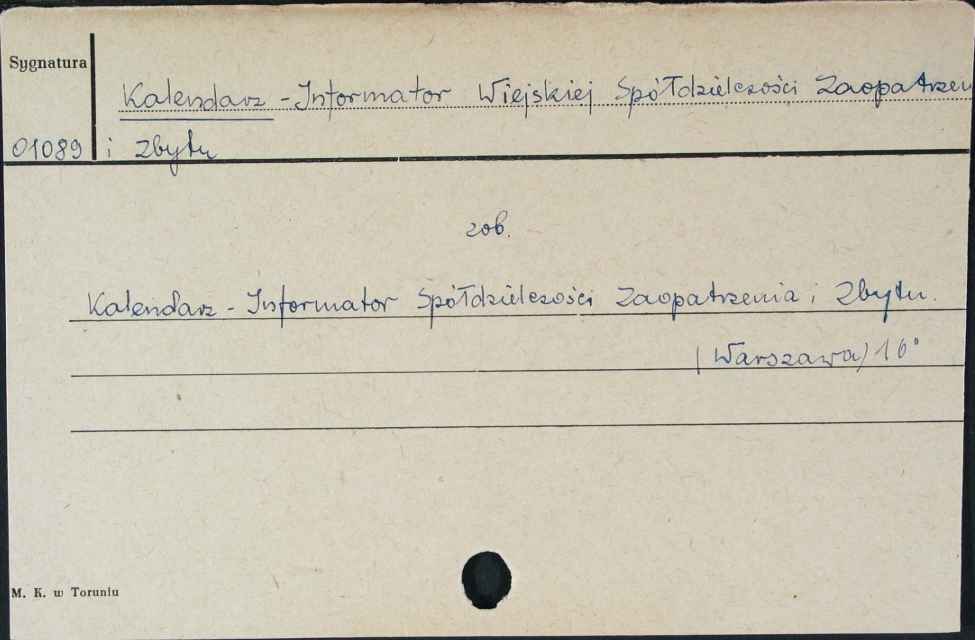 Sygnatura
Kalendarz - Informator Wiejskiej Spółdzielczości Zaopatrzen
01089 i Zbytu
zob.
Kalendarz - Informator Spółdzielczości Zaopatrzenia i Zbytu.
(Warszawa) 16°
M. K. w Toruniu